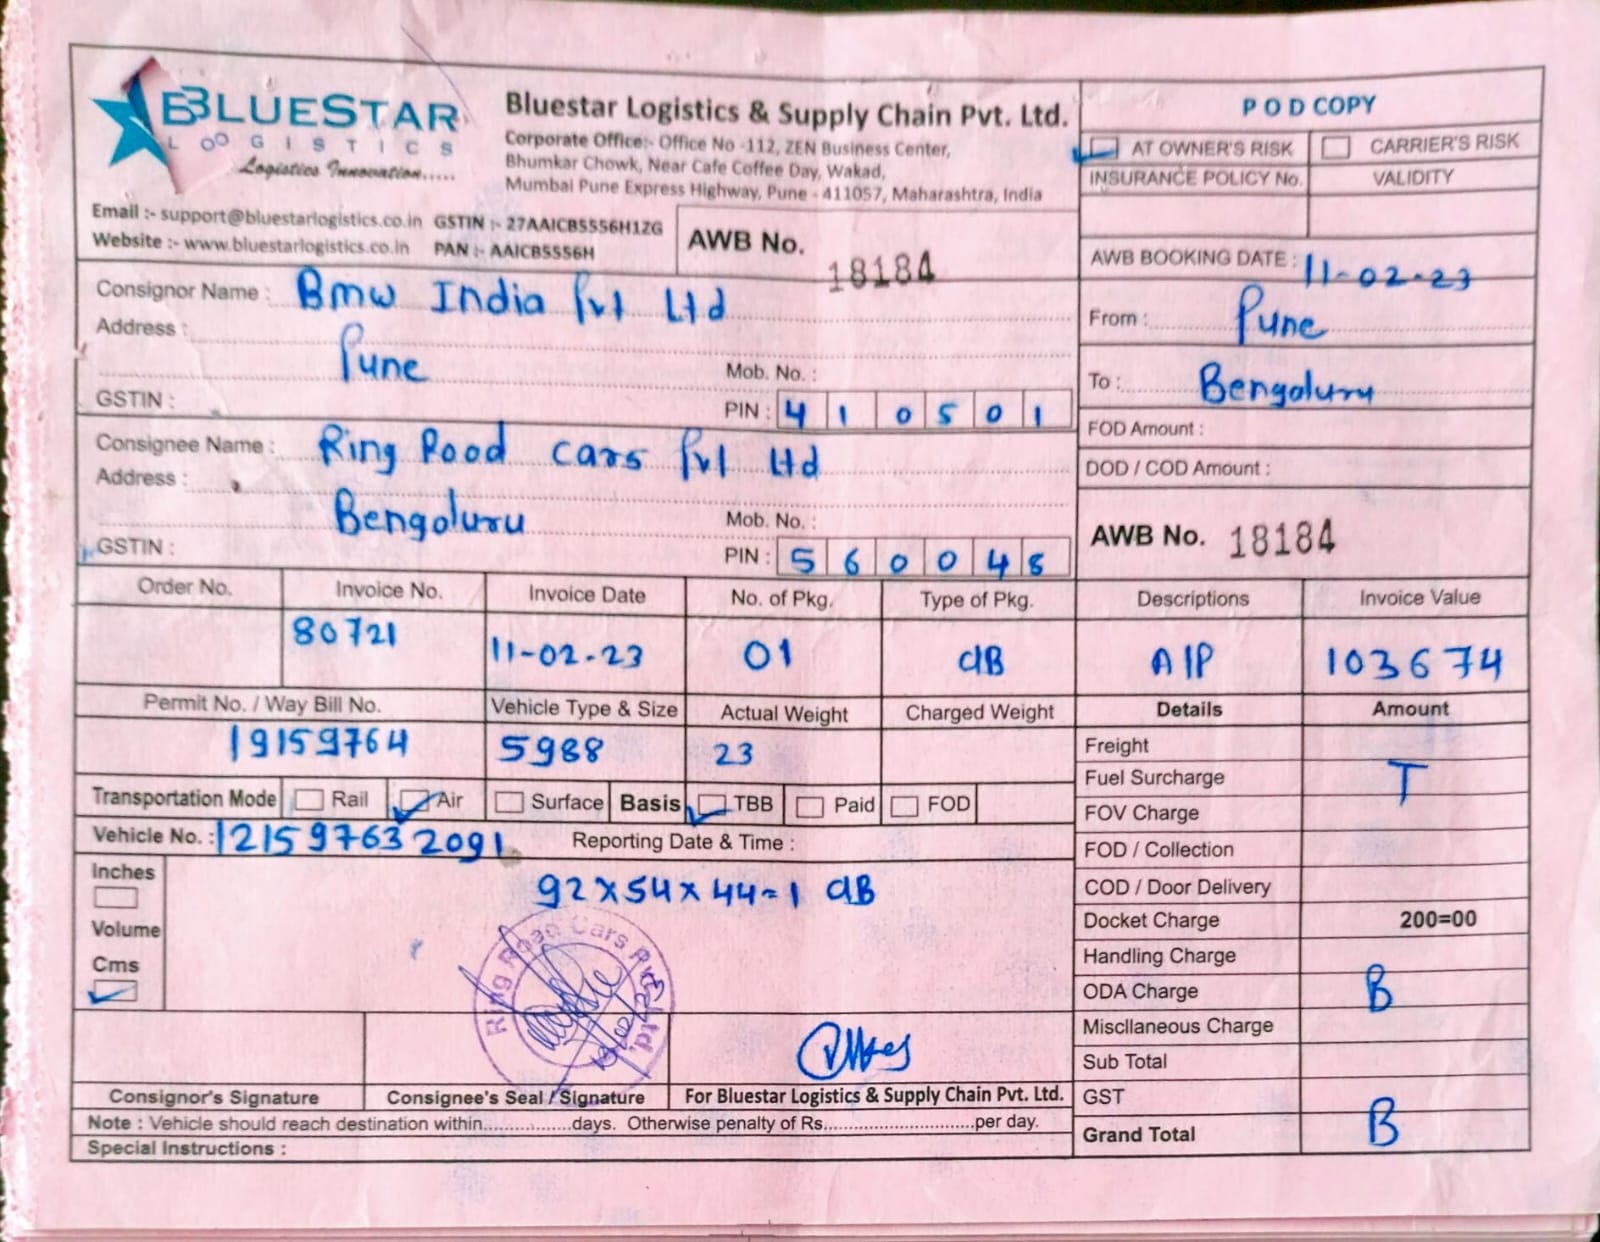 BLUESTAR
LOGISTICS
Logistics Innovation.....
Bluestar Logistics & Supply Chain Pvt. Ltd.
Corporate Office:- Office No -112, ZEN Business Center,
Bhumkar Chowk, Near Cafe Coffee Day, Wakad,
Mumbai Pune Express Highway, Pune - 411057, Maharashtra, India
Email :- support@bluestarlogistics.co.in GSTIN :- 27AAICB5556H1ZG
Website :- www.bluestarlogistics.co.in PAN :- AAICB5556H
AWB No. 18184
POD COPY
AT OWNER'S RISK CARRIER'S RISK
INSURANCE POLICY No. VALIDITY
AWB BOOKING DATE : 11-02-23
From : Pune
To : Bengaluru
FOD Amount :
DOD / COD Amount :
AWB No. 18184
Consignor Name : Bmw India Pvt Ltd
Address :
Pune Mob. No. :
GSTIN : PIN : 410501
Consignee Name : Ring Road Cars Pvt Ltd
Address :
Bengaluru Mob. No. :
GSTIN : PIN : 560048
Order No. Invoice No. Invoice Date No. of Pkg. Type of Pkg. Descriptions Invoice Value
80721 11-02-23 01 CIB AIP 103674
Permit No. / Way Bill No. Vehicle Type & Size Actual Weight Charged Weight Details Amount
19159764 5988 23
Transportation Mode Rail Air Surface Basis TBB Paid FOD
Vehicle No. : 121597632091 Reporting Date & Time :
Inches
Volume
Cms
92x54x44=1 CIB
Ring Road Cars Pvt. Ltd.
Freight
Fuel Surcharge T
FOV Charge
FOD / Collection
COD / Door Delivery
Docket Charge 200=00
Handling Charge
ODA Charge B
Miscllaneous Charge
Sub Total
GST
Grand Total B
Consignor's Signature Consignee's Seal / Signature For Bluestar Logistics & Supply Chain Pvt. Ltd.
Note : Vehicle should reach destination within................days. Otherwise penalty of Rs............................per day.
Special Instructions :